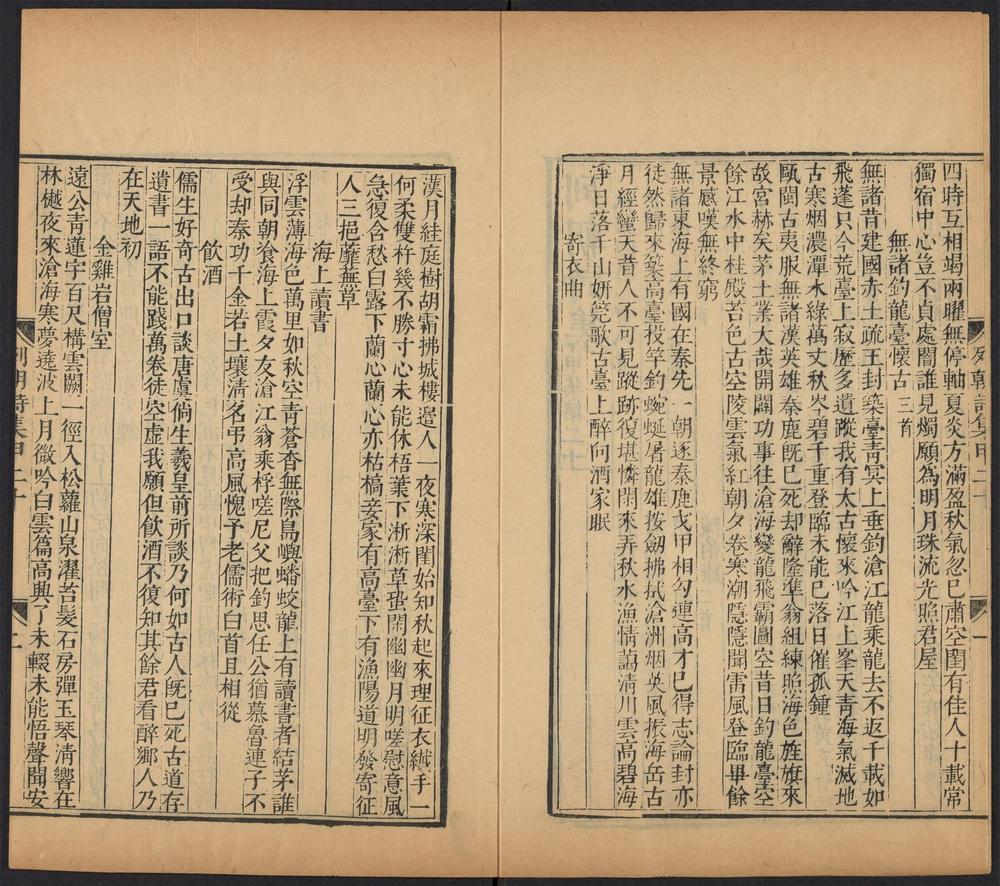 四時互相竭兩曜無停軸夏炎方滿盈秋氣忽已肅空閨有佳人十載常
獨宿中心豈不貞處闇誰見燭願為明月珠流光照君屋
無諸釣龍臺懷古三首
無諸昔建國赤土疏王封築臺青冥上垂釣滄江龍乘龍去不返千載如
飛蓬只今荒臺上寂歷多遺蹤我有太古懷來吟江上峯天青海氣滅地
古寒烟濃潭水綠萬丈秋岑碧千重登臨未能已落日催孤鍾
甌閩古夷服無諸漢英雄秦鹿既已死却辭隆準翁組練照海色旌旗來
故宮赫矣茅土業大哉開闢功事往滄海變龍飛霸圖空昔日釣龍臺空
餘江水中桂殿苔色古空陵雲氣紅朝夕卷寒潮隱隱聞雷風登臨畢餘
景感嘆無終窮
無諸東海上有國在秦先一朝逐秦鹿戈甲相勾連高才已得志論封亦
徒然歸來築高臺投竿釣蜿蜒屠龍雄按劒拂拭滄洲烟英風振海岳古
月經蠻天昔人不可見蹤跡復堪憐閑來弄秋水漁情藹清川雲高碧海
淨日落千山妍筦歌古臺上醉向酒家眠
寄衣曲
列朝詩集甲二十
一
漢月絓庭樹胡霜拂城樓邊人一夜寒深閨始知秋起來理征衣緘手一
何柔雙杵幾不勝寸心未能休梧葉下淅淅草蛩閑幽幽月明嗟慰意風
急復含愁白露下蘭心蘭心亦枯槁妾家有高臺下有漁陽道明發寄征
人三挹蘼蕪草
海上讀書
浮雲薄海色萬里如秋空青蒼杳無際島嶼蟠蛟龍上有讀書者結茅誰
與同朝飧海上霞夕友滄江翁乘桴嗟尼父把釣思任公猶慕魯連子不
受却秦功千金若土壤清名弔高風愧予老儒術白首且相從
飲酒
儒生好奇古出口談唐虞倘生羲皇前所談乃何如古人既已死古道存
遺書一語不能踐萬卷徒空虛我願但飲酒不復知其餘君看醉鄉人乃
在天地初
金雞岩僧室
遠公青蓮宇百尺構雲闕一徑入松蘿山泉濯苔髮石房彈玉琴清響在
林樾夜來滄海寒夢遶波上月微吟白雲篇高興了未輟未能悟聲聞安
列朝詩集甲二十
二